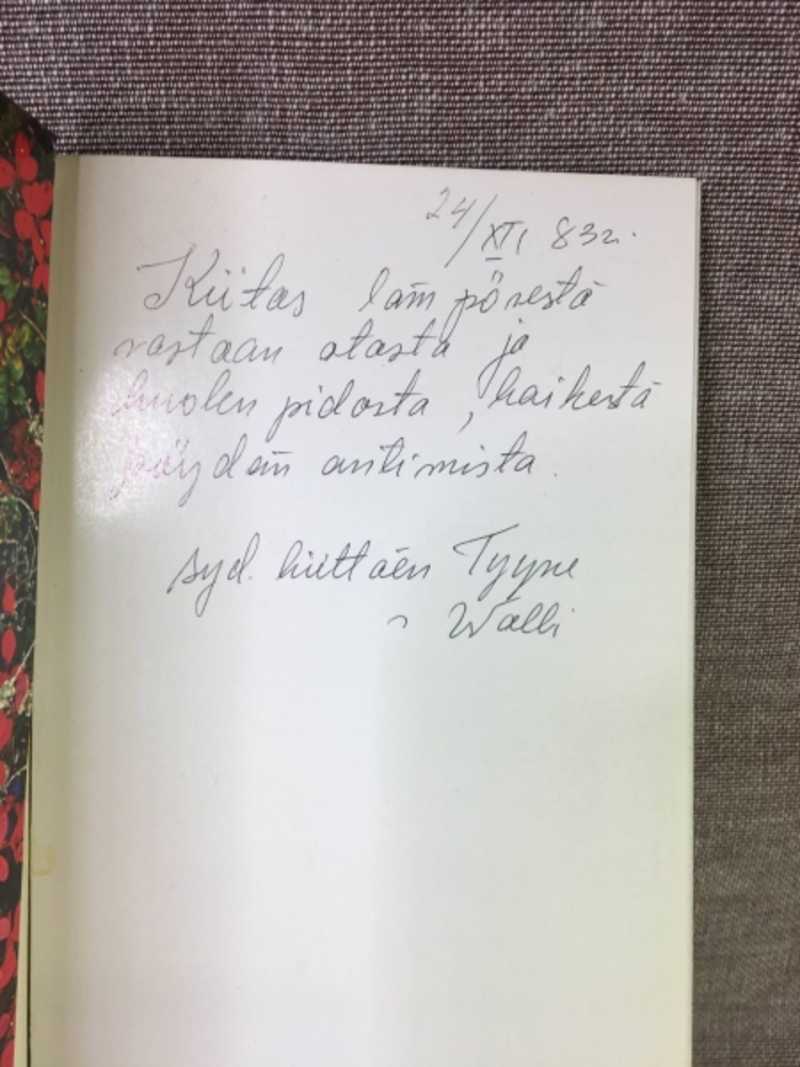 24/XII 83г.
Kiitos lämpösestä
vastaan otosta ja
huolen pidosta, kaikestä
pöydän antimista.
syd. kiittäen Tyyne
" Walli